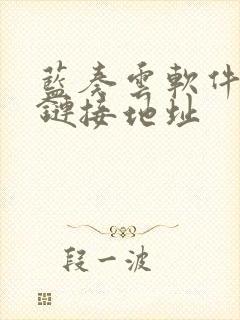 藍奏雲軟件
鏈接地址
段一波